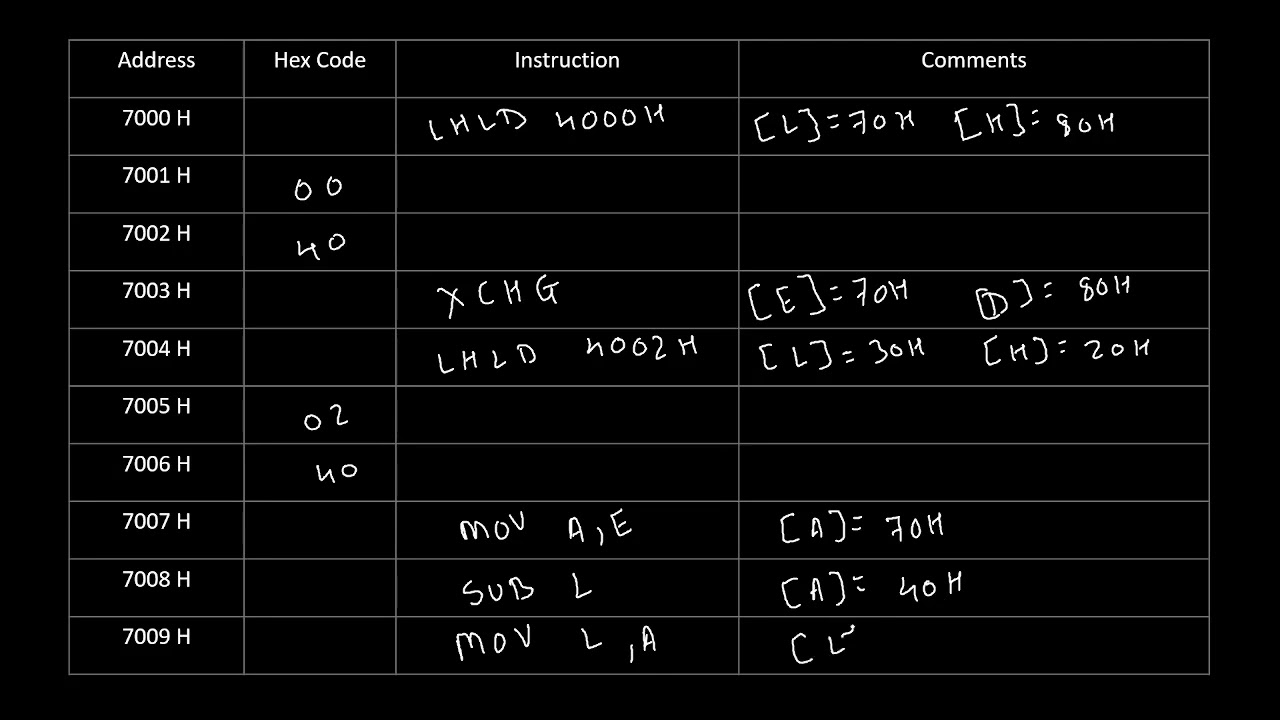 Address Hex Code Instruction Comments
7000 H LHLD 4000H [L]=70H [H]=80H
7001 H 00
7002 H 40
7003 H XCHG [E]=70H [D]=80H
7004 H LHLD 4002H [L]=30H [H]=20H
7005 H 02
7006 H 40
7007 H MOV A,E [A]=70H
7008 H SUB L [A]=40H
7009 H MOV L,A [L